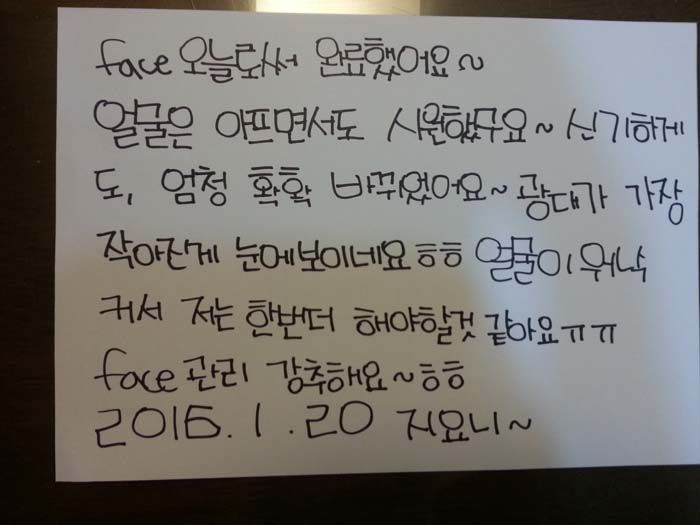 face 오늘로써 완료했어요~
얼물은 아프면서도 시원했구요~ 신기하게
도, 엄청 확확 바뀌었어요~ 광대가 가장
작아진게 눈에보이네요ㅎㅎ 얼물이 워낙
커서 저는 한번더 해야할것 같아요ㅠㅠ
face 관리 강추해요~ㅎㅎ
2016.1.20 지요니~